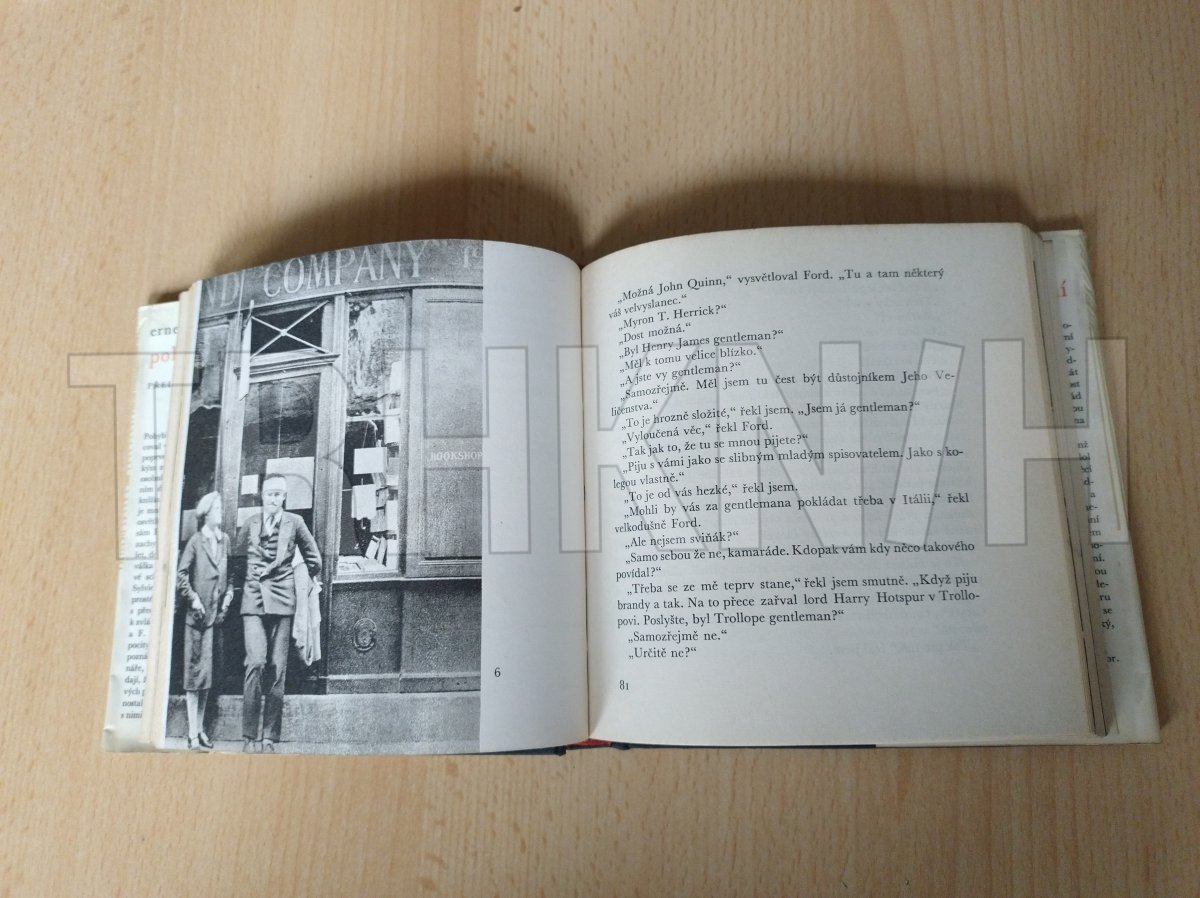 ND COMPANY
BOOKSHOP
6
„Možná John Quinn,“ vysvětloval Ford. „Tu a tam některý
váš velvyslanec.“
„Myron T. Herrick?“
„Dost možná.“
„Byl Henry James gentleman?“
„Měl k tomu velice blízko.“
„A jste vy gentleman?“
„Samozřejmě. Měl jsem tu čest být důstojníkem Jeho Ve-
ličenstva.“
„To je hrozně složité,“ řekl jsem. „Jsem já gentleman?“
„Vyloučená věc,“ řekl Ford.
„Tak jak to, že tu se mnou pijete?“
„Piju s vámi jako se slibným mladým spisovatelem. Jako s ko-
legou vlastně.“
„To je od vás hezké,“ řekl jsem.
„Mohli by vás za gentlemana pokládat třeba v Itálii,“ řekl
velkodušně Ford.
„Ale nejsem sviňák?“
„Samo sebou že ne, kamaráde. Kdopak vám kdy něco takového
povídal?“
„Třeba se ze mě teprv stane,“ řekl jsem smutně. „Když piju
brandy a tak. Na to přece zařval lord Harry Hotspur v Trollo-
povi. Poslyšte, byl Trollope gentleman?“
„Samozřejmě ne.“
„Určitě ne?“
81
TRHKNIH